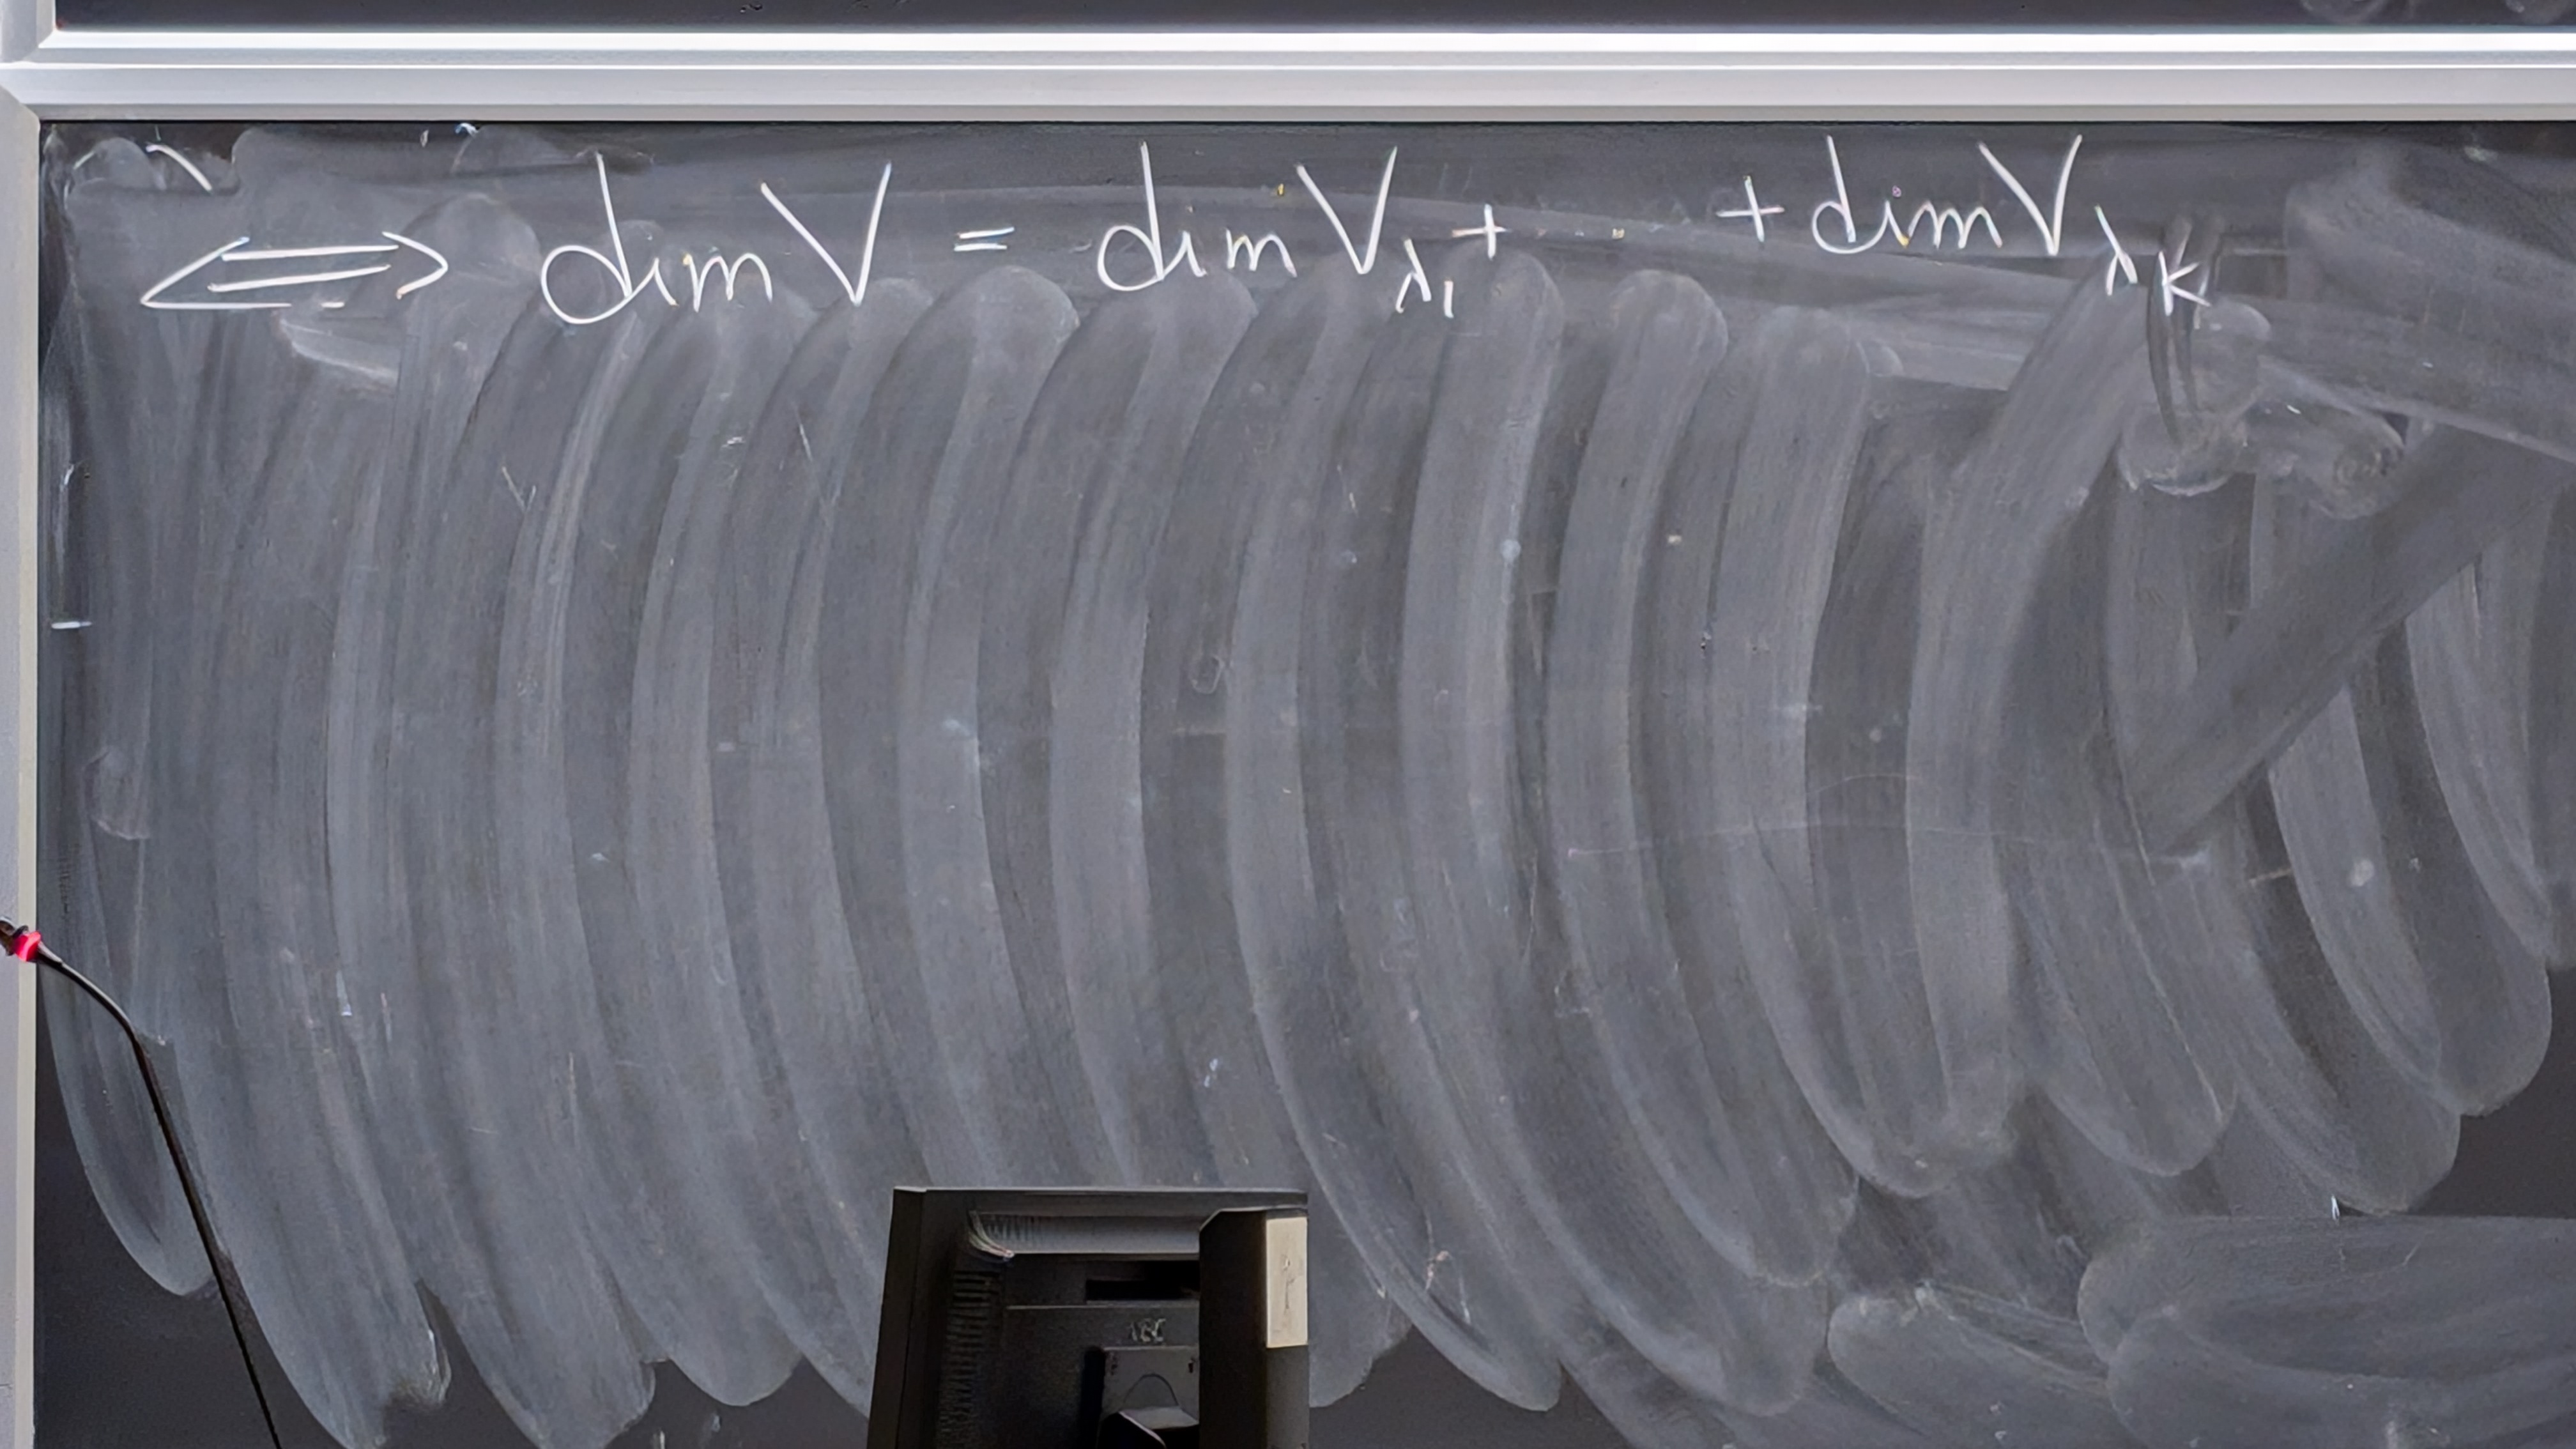 ⟺ dim V = dim V_λ₁ + ... + dim V_λₖ